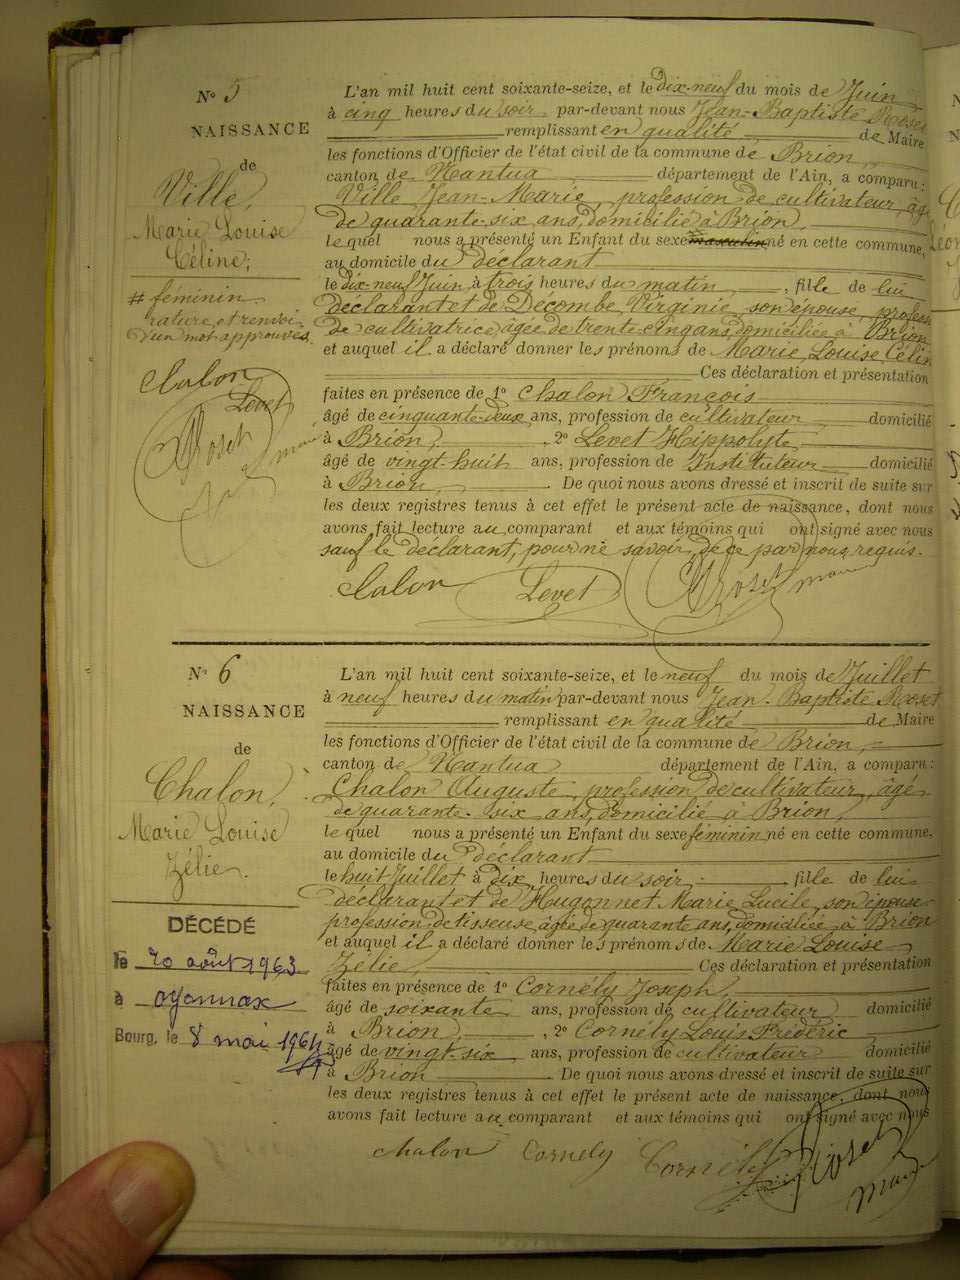 N° 5
NAISSANCE
de
Ville,
Marie Louise
Céline;
# féminin
rature et renvoi
d'un mot approuvés.
Chalon
Levet
Roset
maire
L'an mil huit cent soixante-seize, et le dix-neuf du mois de Juin
à cinq heures du soir par-devant nous Jean-Baptiste Roset
remplissant en qualité de Maire
les fonctions d'Officier de l'état civil de la commune de Brion,
canton de Nantua département de l'Ain, a comparu:
Ville Jean-Marie, profession de cultivateur, âgé
de quarante-six ans, domicilié à Brion,
lequel nous a présenté un Enfant du sexe masculin né en cette commune,
au domicile du déclarant
le dix-neuf Juin à trois heures du matin, fille de lui
déclarant et de Décombe Virginie, son épouse, profession
de cultivatrice, âgée de trente-cinq ans, domiciliée à Brion,
et auquel il a déclaré donner les prénoms de Marie, Louise, Célin
Ces déclaration et présentation
faites en présence de 1° Chalon François
âgé de cinquante-deux ans, profession de cultivateur domicilié
à Brion, 2° Levet Hippolyte,
âgé de vingt-huit ans, profession de Instituteur domicilié
à Brion, De quoi nous avons dressé et inscrit de suite sur
les deux registres tenus à cet effet le présent acte de naissance, dont nous
avons fait lecture au comparant et aux témoins qui ont signé avec nous
sauf le déclarant, pour ne savoir, de ce par nous requis.
Chalon Levet Roset maire
N° 6
NAISSANCE
de
Chalon,
Marie Louise
Zélie.
DÉCÉDÉ
le 20 août 1963
à oyonnax
Bourg, le 8 mai 1964
L'an mil huit cent soixante-seize, et le neuf du mois de Juillet
à neuf heures du matin par-devant nous Jean-Baptiste Roset
remplissant en qualité de Maire
les fonctions d'Officier de l'état civil de la commune de Brion,
canton de Nantua département de l'Ain, a comparu:
Chalon Auguste, profession de cultivateur, âgé
de quarante-six ans, domicilié à Brion,
lequel nous a présenté un Enfant du sexe féminin né en cette commune,
au domicile du déclarant
le huit Juillet à dix heures du soir, fille de lui
déclarant et de Hugonnet Marie Lucile, son épouse
profession de tisseuse, âgée de quarante ans, domiciliée à Brion
et auquel il a déclaré donner les prénoms de Marie Louise
Zélie, Ces déclaration et présentation
faites en présence de 1° Cornély Joseph,
âgé de soixante ans, profession de cultivateur domicilié
à Brion, 2° Cornély Louis Frédéric
âgé de vingt-six ans, profession de cultivateur domicilié
à Brion De quoi nous avons dressé et inscrit de suite sur
les deux registres tenus à cet effet le présent acte de naissance, dont nous
avons fait lecture au comparant et aux témoins qui ont signé avec nous
Chalon Cornély Cornély Roset
maire